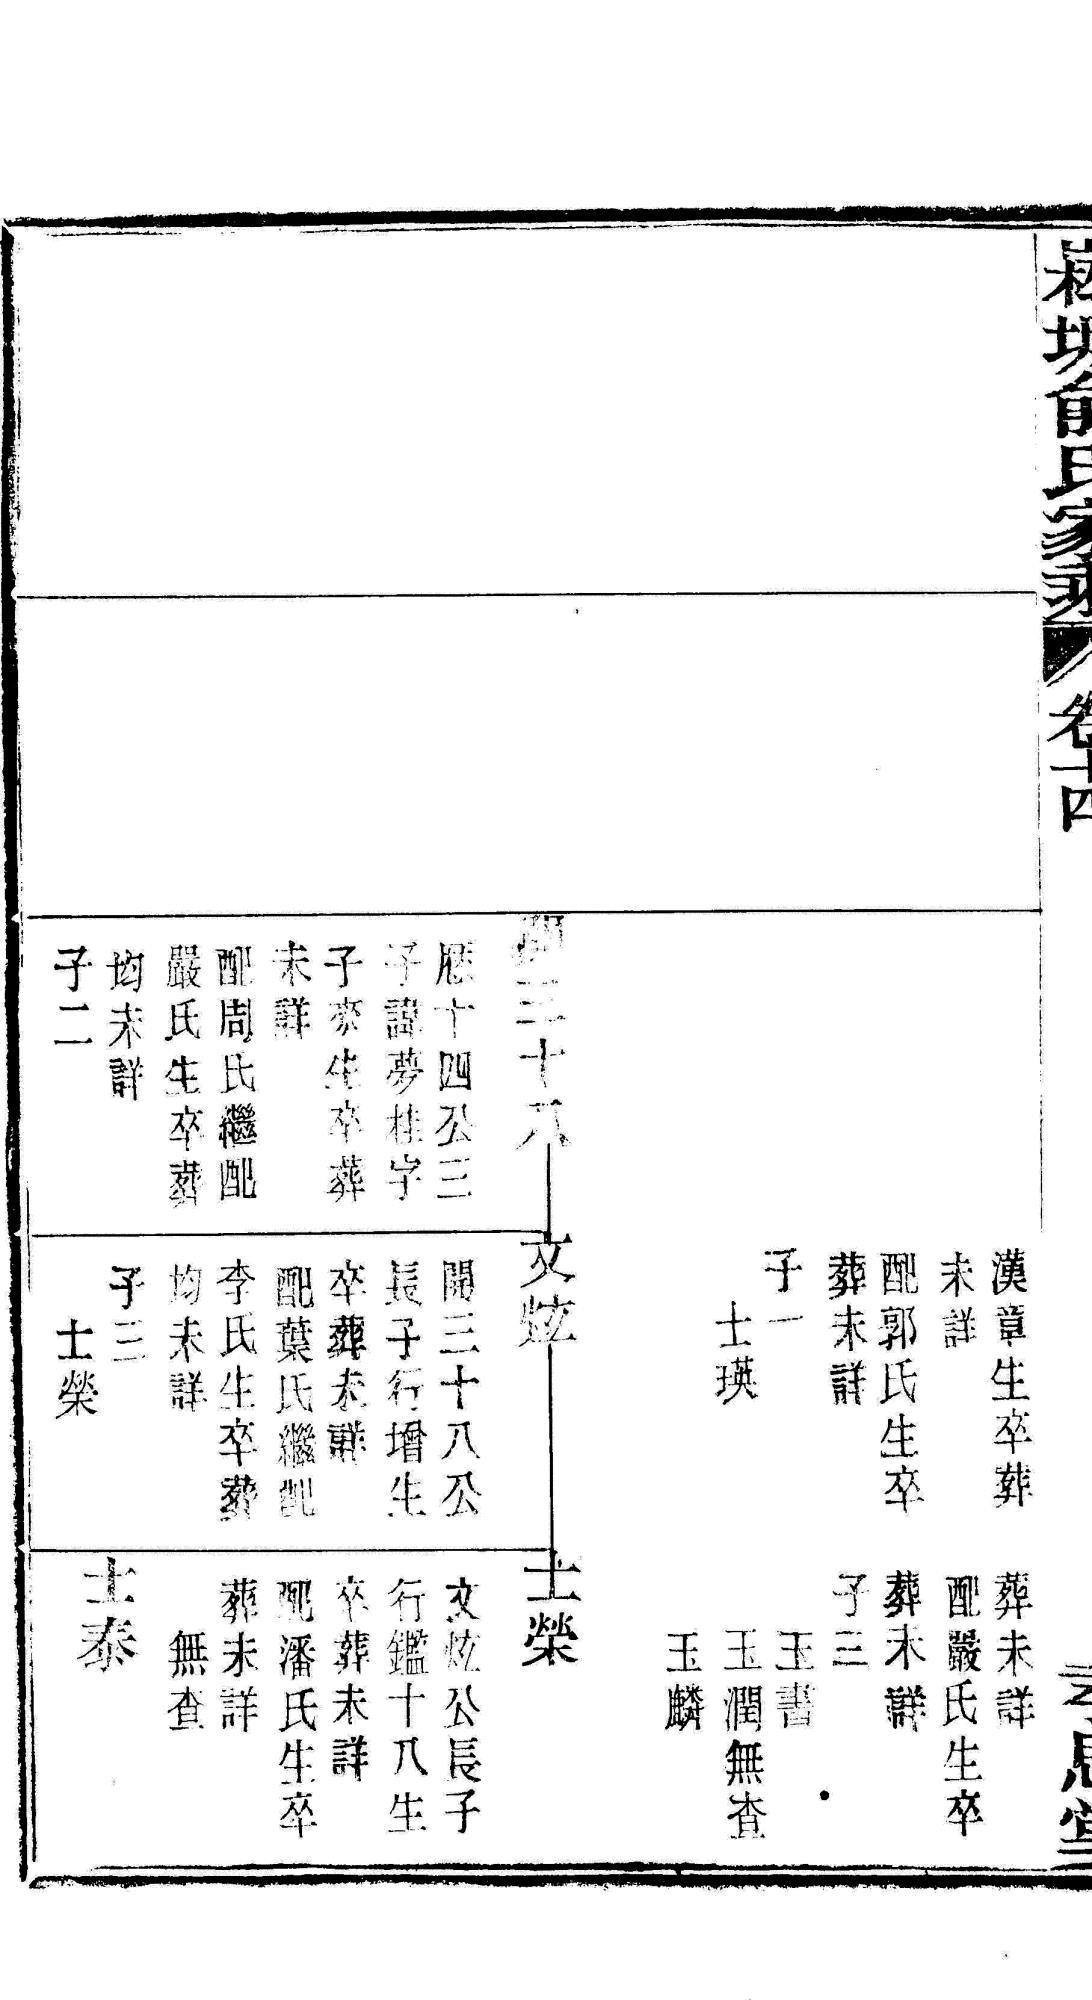 俞氏家乘
卷十四
孝思堂
漢章生卒葬
未詳
配郭氏生卒
葬未詳
子一
士瑛
葬未詳
配嚴氏生卒
葬未詳
子三
玉書
玉潤無查
玉麟
開三十八
歷十四公三
子諱夢桂字
子來生卒葬
未詳
配周氏繼配
嚴氏生卒葬
均未詳
子二
文炫
開三十八公
長子行增生
卒葬未詳
配葉氏繼配
李氏生卒葬
均未詳
子三
士榮
士榮
文炫公長子
行鑑十八生
卒葬未詳
配潘氏生卒
葬未詳
無查
士泰